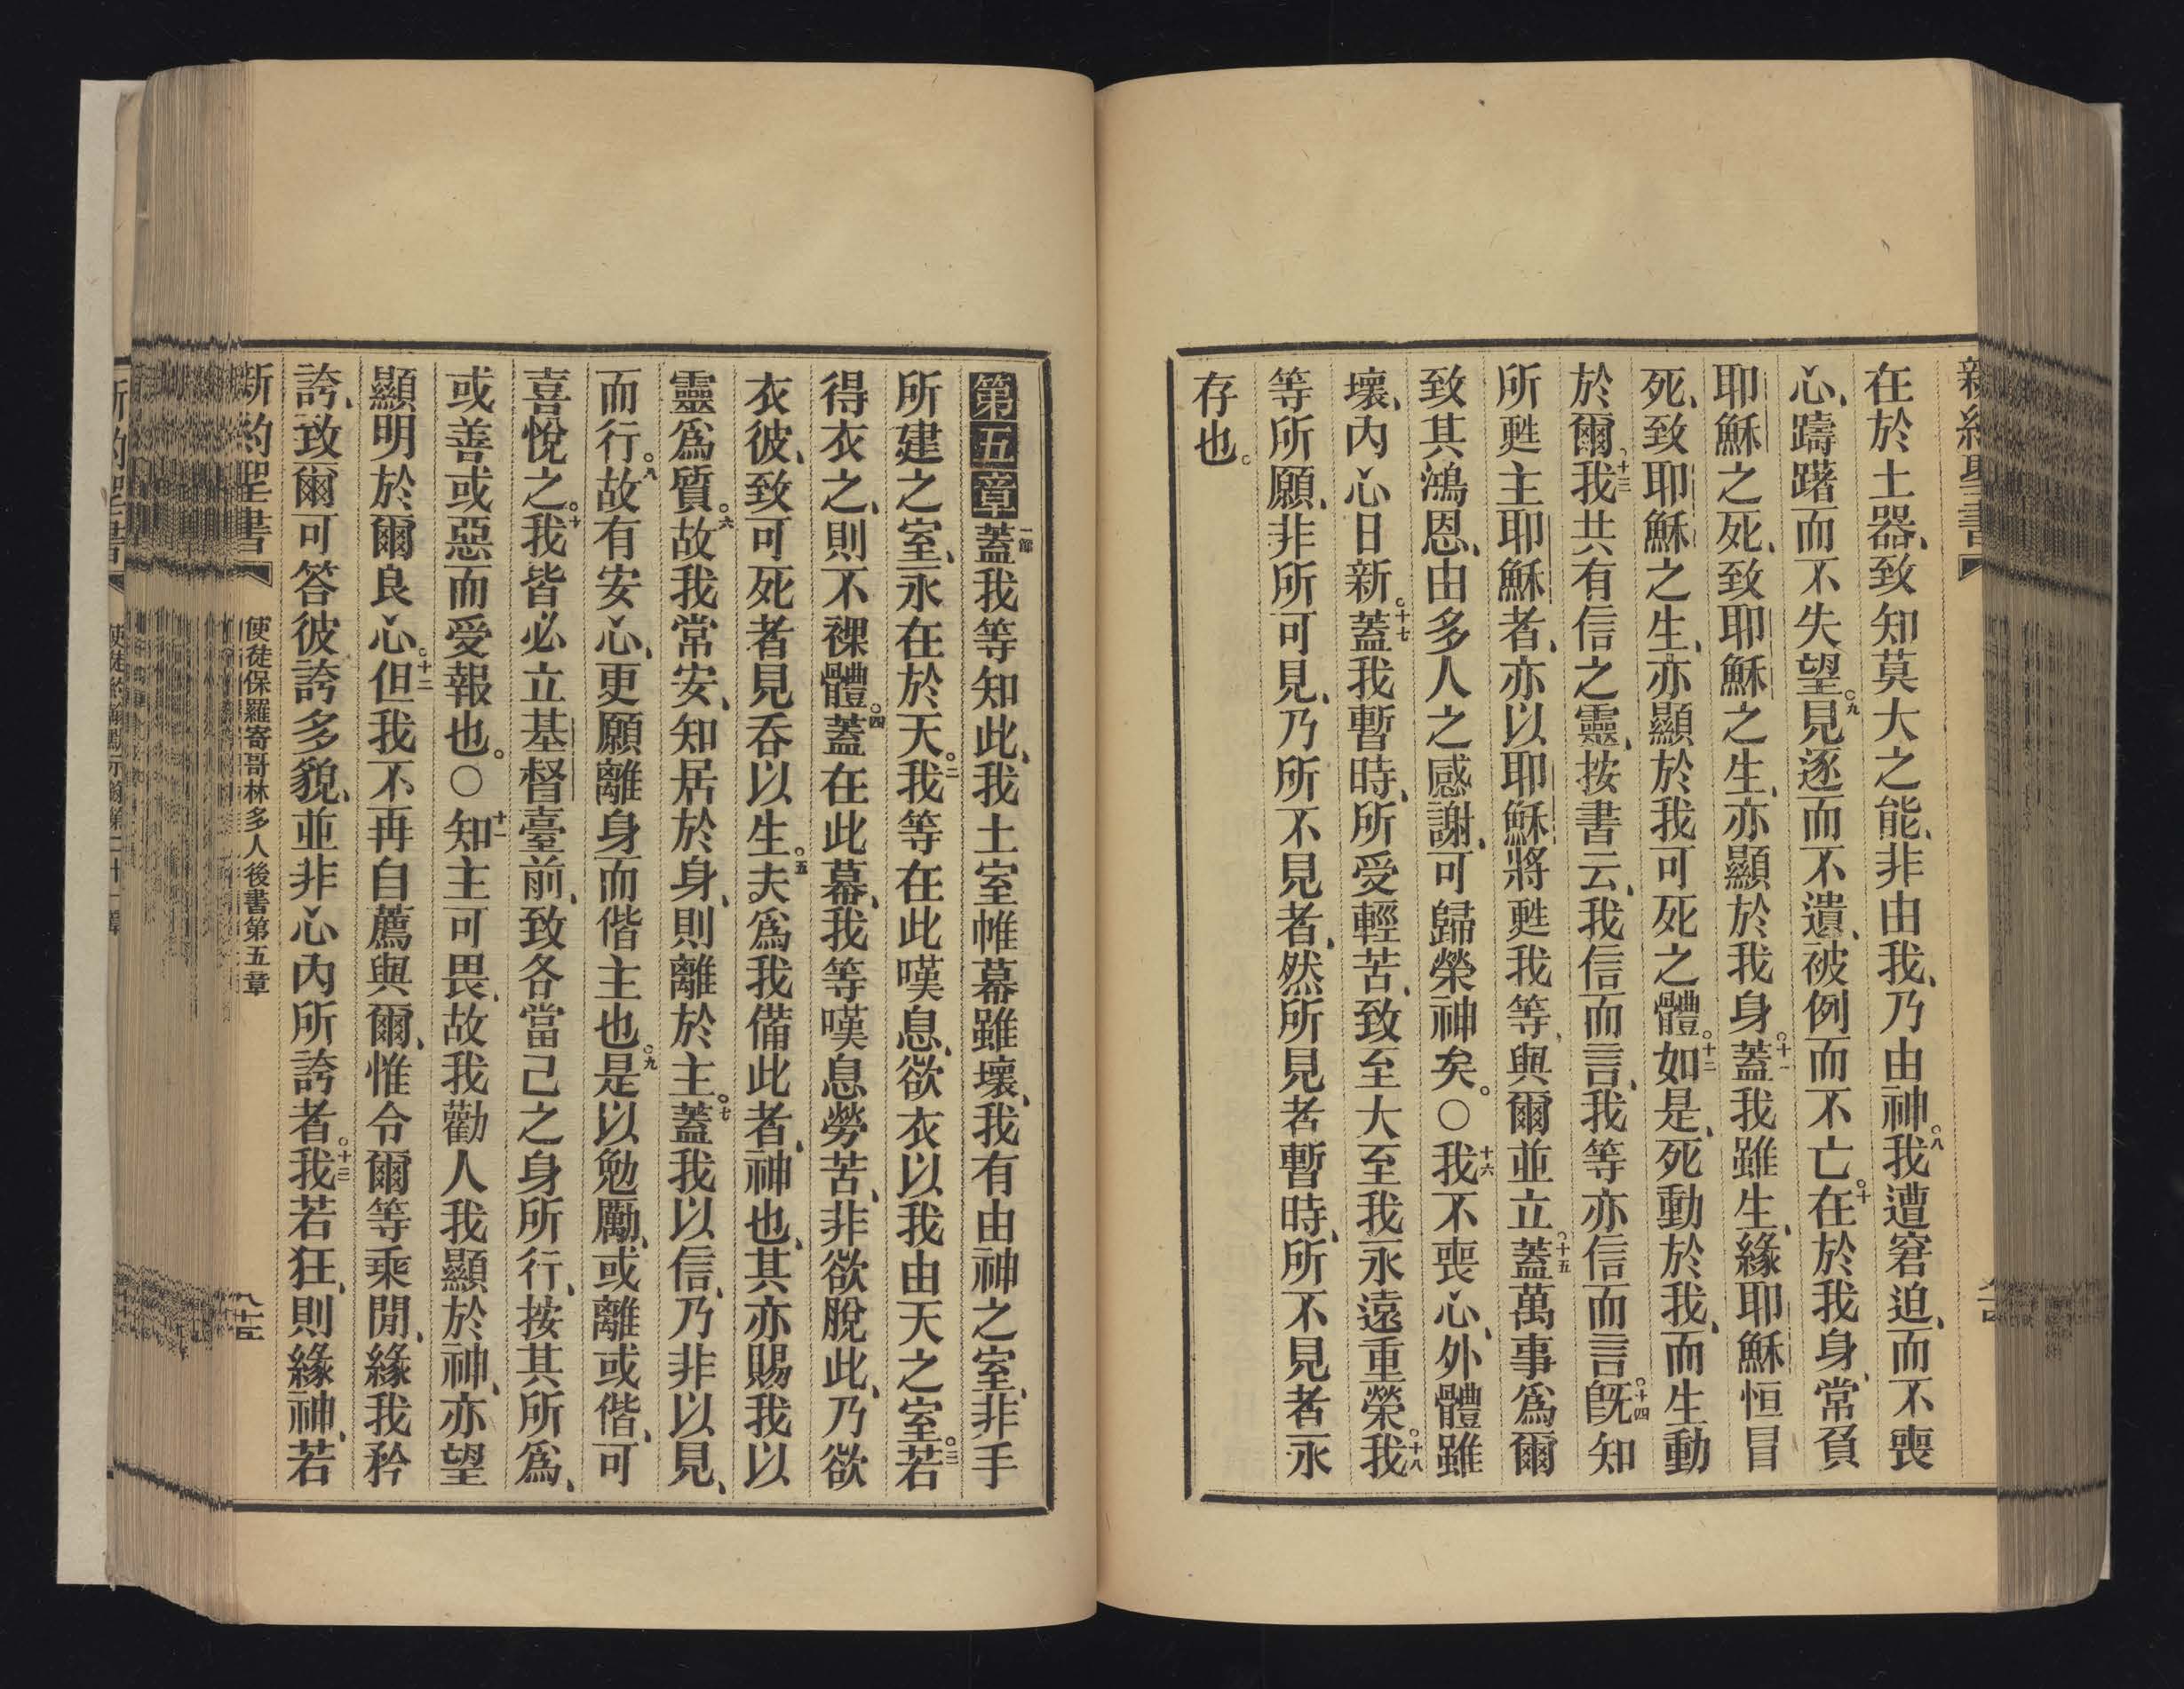 在於土器、致知莫大之能、非由我、乃由神。八我遭窘迫、而不喪
心、躊躇而不失望。九見逐而不遺、被例而不亡。十在於我身、常負
耶穌之死、致耶穌之生、亦顯於我身。十一蓋我雖生、緣耶穌恒冒
死、致耶穌之生、亦顯於我可死之體。十二如是、死動於我、而生動
於爾、十三我共有信之靈、按書云、我信而言、我等亦信而言。十四旣知
所甦主耶穌者、亦以耶穌將甦我等、與爾並立。十五蓋萬事爲爾
致其鴻恩、由多人之感謝、可歸榮神矣。○十六我不喪心、外體雖
壞、內心日新。十七蓋我暫時、所受輕苦、致至大至我永遠重榮。十八我
等所願、非所可見、乃所不見者、然所見者暫時、所不見者永
存也。
第五章一節蓋我等知此、我土室帷幕雖壞、我有由神之室、非手
所建之室、永在於天。二我等在此嘆息、欲衣以我由天之室。三若
得衣之、則不裸體。四蓋在此幕、我等嘆息勞苦、非欲脫此、乃欲
衣彼、致可死者見吞以生。五夫爲我備此者、神也、其亦賜我以
靈爲質。六故我常安、知居於身、則離於主。七蓋我以信、乃非以見、
而行。八故有安心、更願離身而偕主也。九是以勉勵、或離或偕、可
喜悅之。十我皆必立基督臺前、致各當己之身所行、按其所爲、
或善或惡而受報也。○十一知主可畏、故我勸人我顯於神、亦望
顯明於爾良心。十二但我不再自薦與爾、惟令爾等乘閒、緣我矜
誇、致爾可答彼誇多貌、並非心內所誇者。十三我若狂、則緣神、若
新約聖書 使徒保羅寄哥林多人後書第五章 八十五